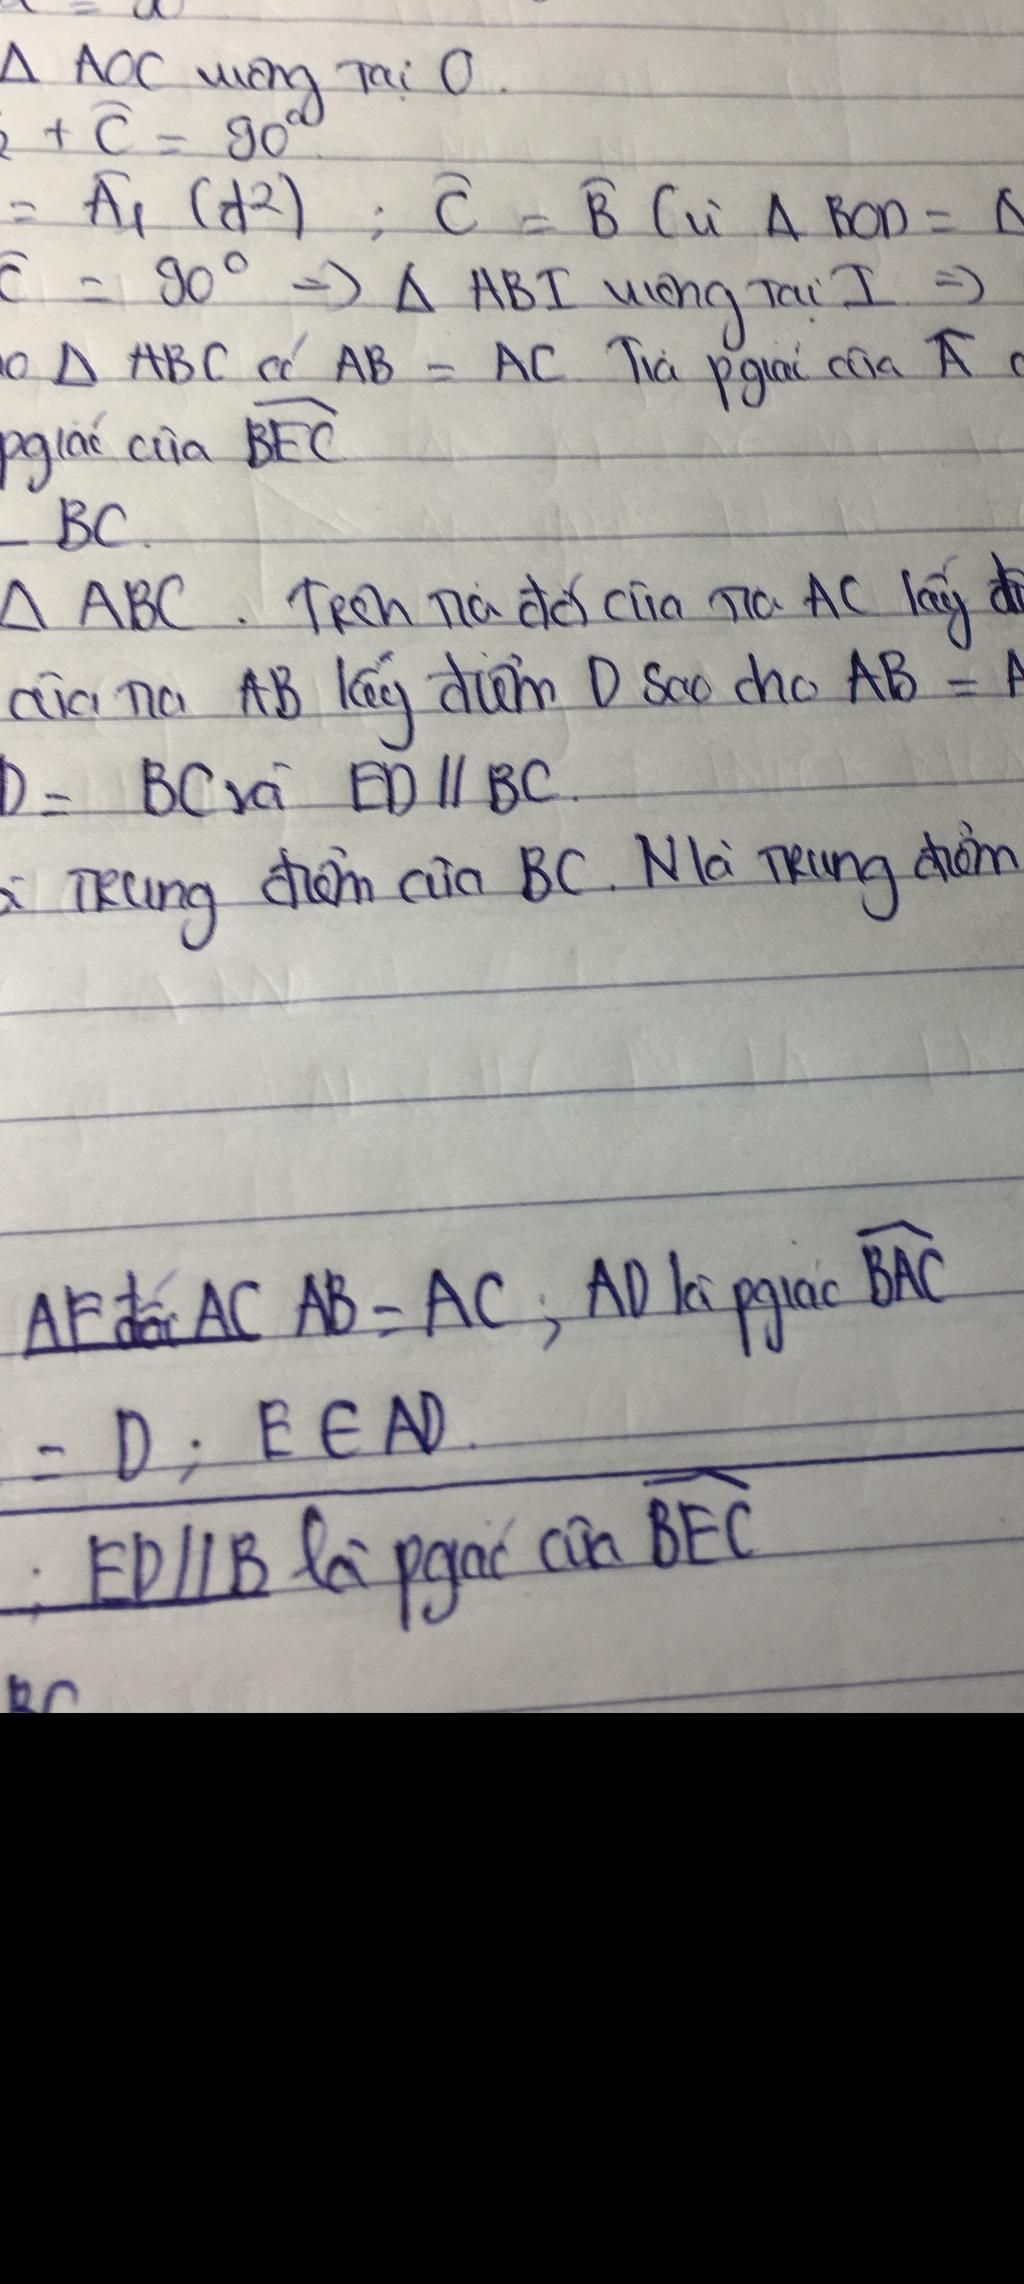 Δ AOC vuông tại O.
+ Ĉ = 90°
= Â₁ (đ²) ; Ĉ = B̂ (vì Δ BOD = Δ
Ĉ = 90° => Δ ABI vuông tại I =>
Δ ABC có AB = AC Tia pgiác của Â
pgiác của BEC
BC.
Δ ABC . Trên tia đối của tia AC lấy
của tia AB lấy điểm D sao cho AB = A
D = BC và ED // BC.
trung điểm của BC. N là trung điểm
AE đối AC AB = AC ; AD là pgiác BAC
= D ; E ∈ AD.
; ED // B là pgác của BEC
BC